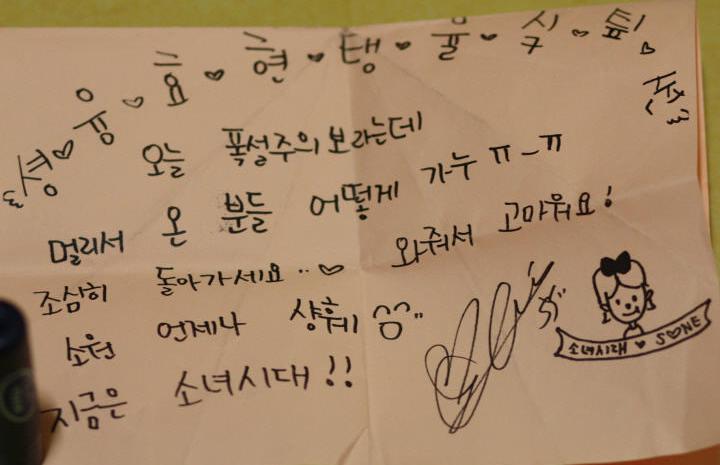 정♡융♡효♡현♡탱♡율♡식♡튑♡순
오늘 폭설주의보라는데
멀리서 온 분들 어떻게 가누 ㅠ_ㅠ
조심히 돌아가세요..♡ 와줘서 고마워요!
소원 언제나 샹훼 ^^
지금은 소녀시대!!
소녀시대♡S♡NE